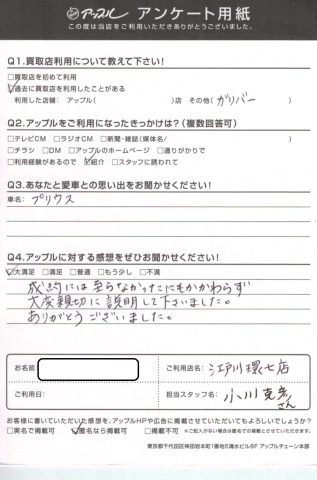 アップル アンケート用紙
この度は当店をご利用いただきありがとうございました。
Q1.買取店利用について教えて下さい!
□買取店を初めて利用
☑過去に買取店を利用したことがある
利用した店舗: アップル( )店 その他( ガリバー )
Q2.アップルをご利用になったきっかけは?(複数回答可)
□テレビCM □ラジオCM □新聞・雑誌(媒体名/ )
□チラシ □DM □アップルのホームページ □通りがかりで
□利用経験があるので ☑紹介 □スタッフに誘われて
Q3.あなたと愛車との思い出をお聞かせください!
車名: プリウス
Q4.アップルに対する感想をぜひお聞かせください!
☑大満足 □満足 □普通 □もう少し □不満
成約には至らなかったにもかかわらず
大変親切に説明して下さいました。
ありがとうございました。
お名前
ご利用店名: 江戸川環七店
ご利用日:
担当スタッフ名: 小川克彦さん
お客様に書いていただいた感想を、アップルHPや広告に掲載させていただいてもよろしいでしょうか?
□実名で掲載可 ☑匿名なら掲載可 ※ご記入がない場合は匿名での掲載とさせていただきます。
東京都千代田区神田岩本町1番地5清水ビル6F アップルチェーン本部